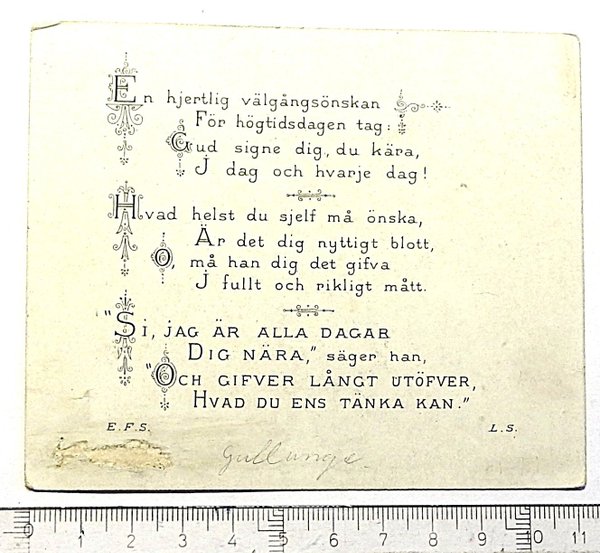 En hjertlig välgångsönskan
För högtidsdagen tag:
Gud signe dig, du kära,
I dag och hvarje dag!
Hvad helst du sjelf må önska,
Är det dig nyttigt blott,
O, må han dig det gifva
I fullt och rikligt mått.
"Si, JAG ÄR ALLA DAGAR
DIG NÄRA," säger han,
"OCH GIFVER LÅNGT UTÖFVER,
HVAD DU ENS TÄNKA KAN."
E.F.S. L.S.
Gullunge
0 1 2 3 4 5 6 7 8 9 10 11